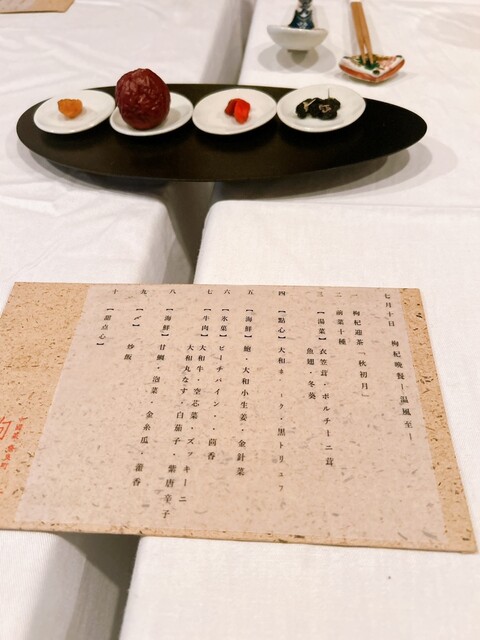 七月十日 枸杞晩餐ー温風至ー
一 枸杞迎茶「秋初月」
二 前菜十種
三 【湯菜】衣笠茸・ポルチーニ茸
魚翅・冬葵
四 【點心】大和 ーク・黒トリュフ
五 【海鮮】鮑・大和小生姜・金針菜
六 【氷菓】ピーチパイン・ 茴香
七 【牛肉】大和牛・空芯菜・ズッキーニ
大和丸なす・白茄子・紫唐辛子
八 【海鮮】甘鯛・泡菜・金糸瓜・藿香
九 【〆】 炒飯
十 【甜点心】